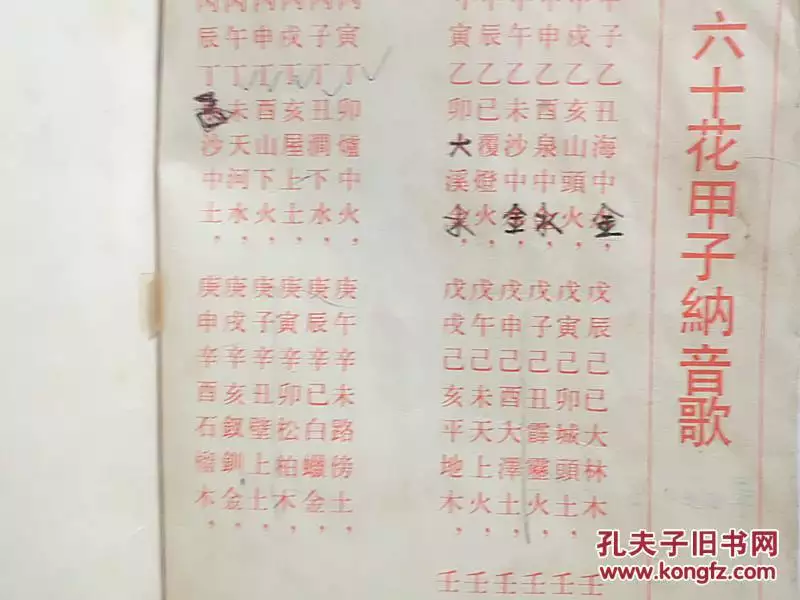 六十花甲子納音歌
子乙丑海中金,
戌乙亥山頭火,
申乙酉泉中水,
午乙未沙中金,
辰乙巳覆燈火,
寅乙卯大溪水,
戊辰己巳大林木,
戊寅己卯城頭土,
戊子己丑霹靂火,
戊申己酉大澤土,
戊午己未天上火,
戊戌己亥平地木,
壬
壬
壬
壬
壬
壬
丙寅丁卯爐中火,
丙子丁丑澗下水,
丙戌丁亥屋上土,
丙申丁酉山下火,
丙午丁未天河水,
丙辰丁沙中土,
庚午辛未路傍土,
庚辰辛巳白蠟金,
庚寅辛卯松柏木,
庚子辛丑壁上土,
庚戌辛亥釵釧金,
庚申辛酉石榴木,
孔夫子旧书网
www.kongfz.com